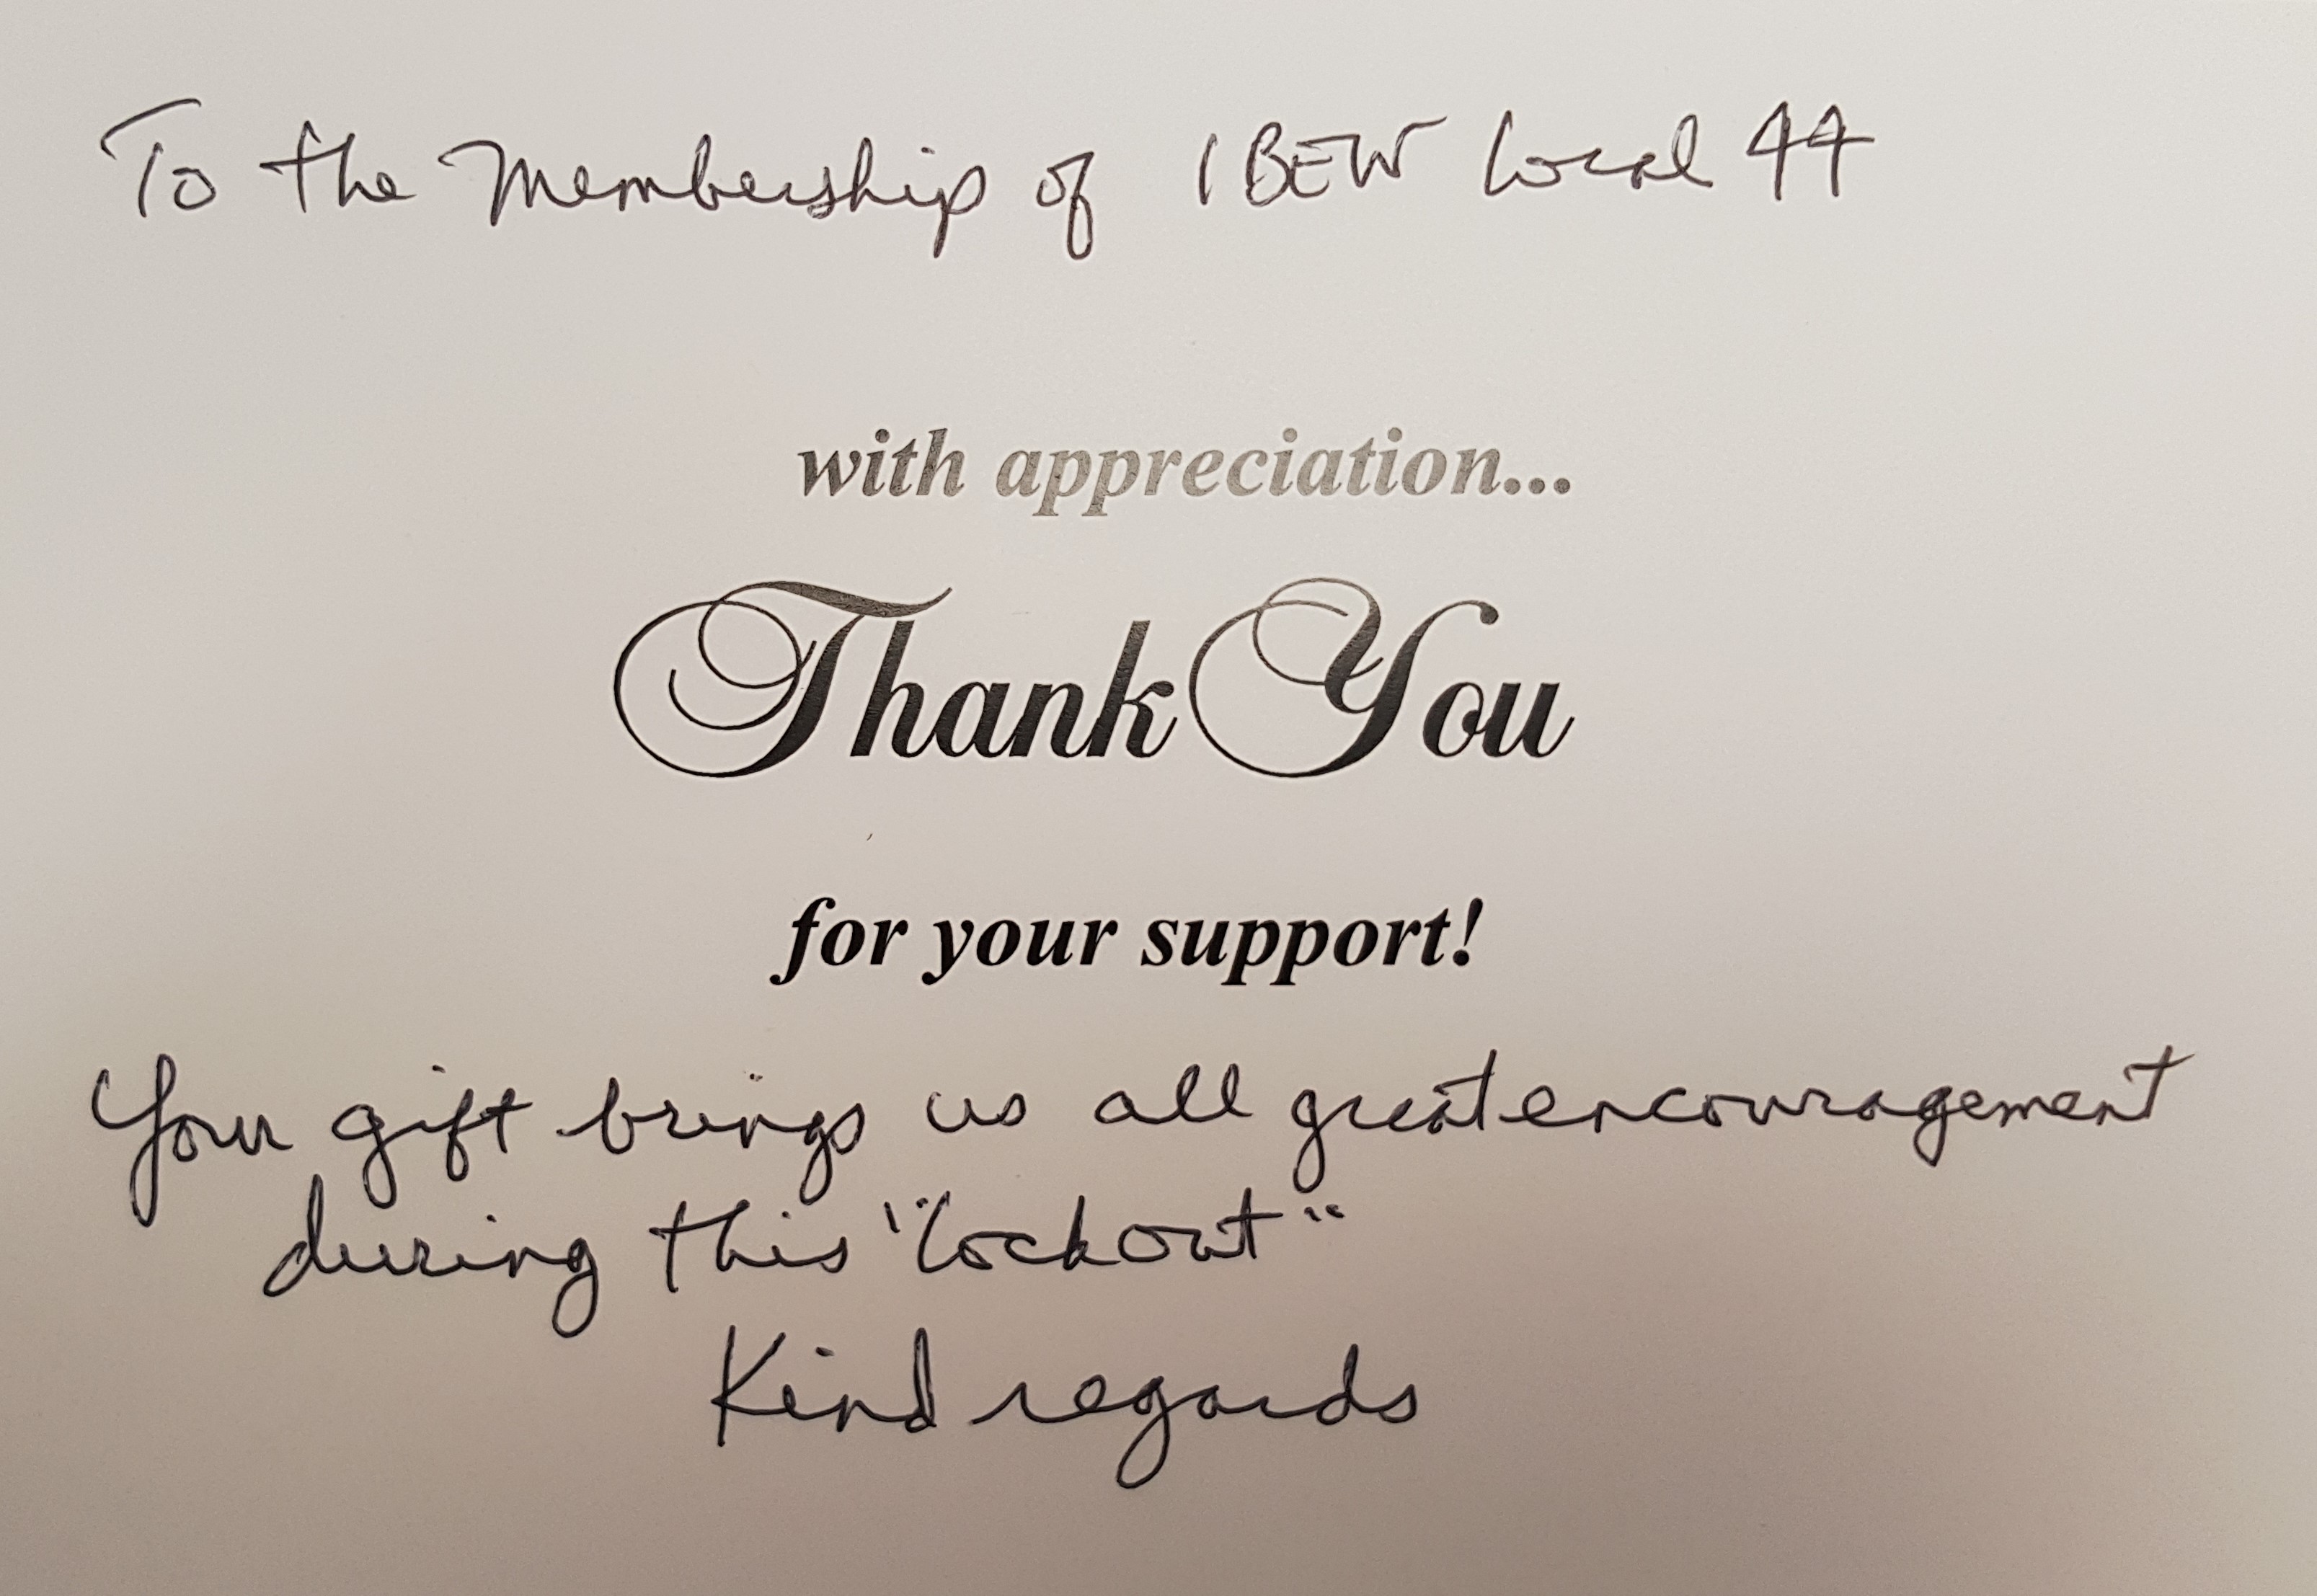 To the Membership of IBEW Local 44
with appreciation...
Thank You
for your support!
Your gift brings us all great encouragement
during this "lockout"
Kind regards